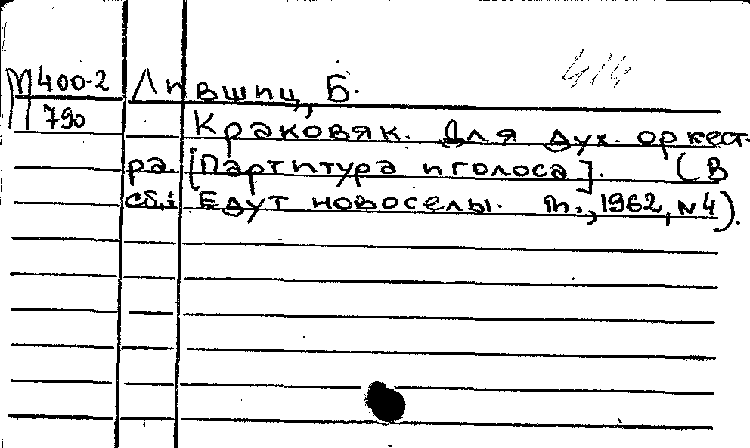 414
М 400-2 Лившиц, Б.
790
Краковяк. Для дух. оркест-
ра. [Партитура и голоса]. (В
сб.: Едут новоселы. М., 1962, № 4).